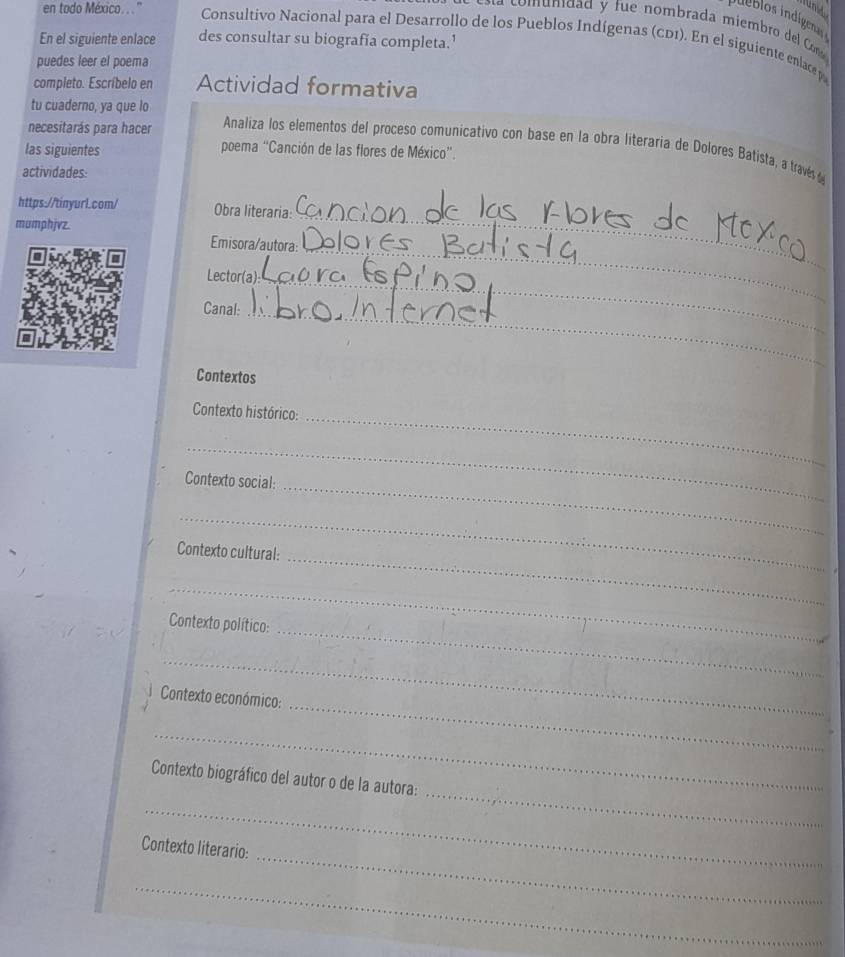 en todo México…"
En el siguiente enlace
puedes leer el poema
completo. Escríbelo en
tu cuaderno, ya que lo
necesitarás para hacer
las siguientes
actividades:
https://tinyurl.com/
mumphjvz.
pueblos indígenas
comunidad y fue nombrada miembro del
Consultivo Nacional para el Desarrollo de los Pueblos Indígenas (CDI). En el siguiente enlace
des consultar su biografía completa.¹
Actividad formativa
Analiza los elementos del proceso comunicativo con base en la obra literaria de Dolores Batista, a través
poema "Canción de las flores de México".
Obra literaria: Cancion de las Flores de Mexico
Emisora/autora: Dolores Batista
Lector(a): Laora Espino
Canal: libro. Internet
Contextos
Contexto histórico:
Contexto social:
Contexto cultural:
Contexto político:
Contexto económico:
Contexto biográfico del autor o de la autora:
Contexto literario: